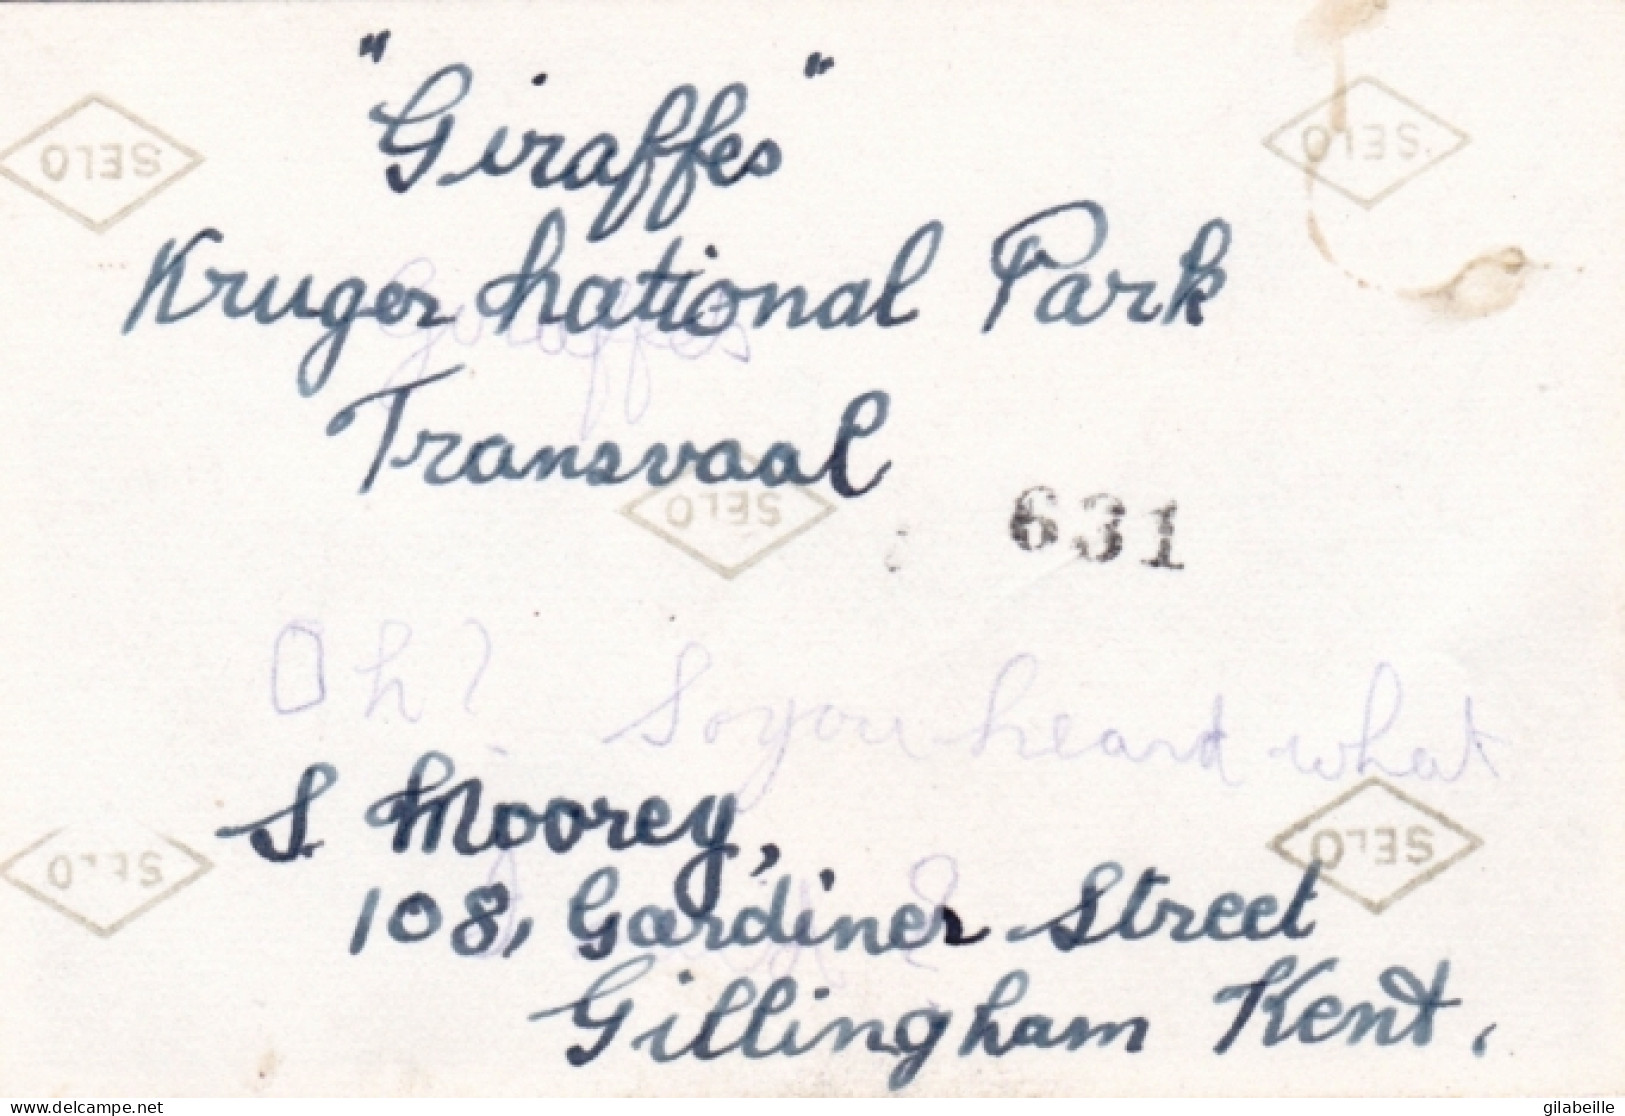 "Giraffes"
SELO
SELO
Kruger National Park
Giraffes
Transvaal
SELO
631
Oh? So you heard what
S Moorey,
SELO
SELO
108, Gardiner Street
Gillingham Kent.
delcampe.net
gilabeille